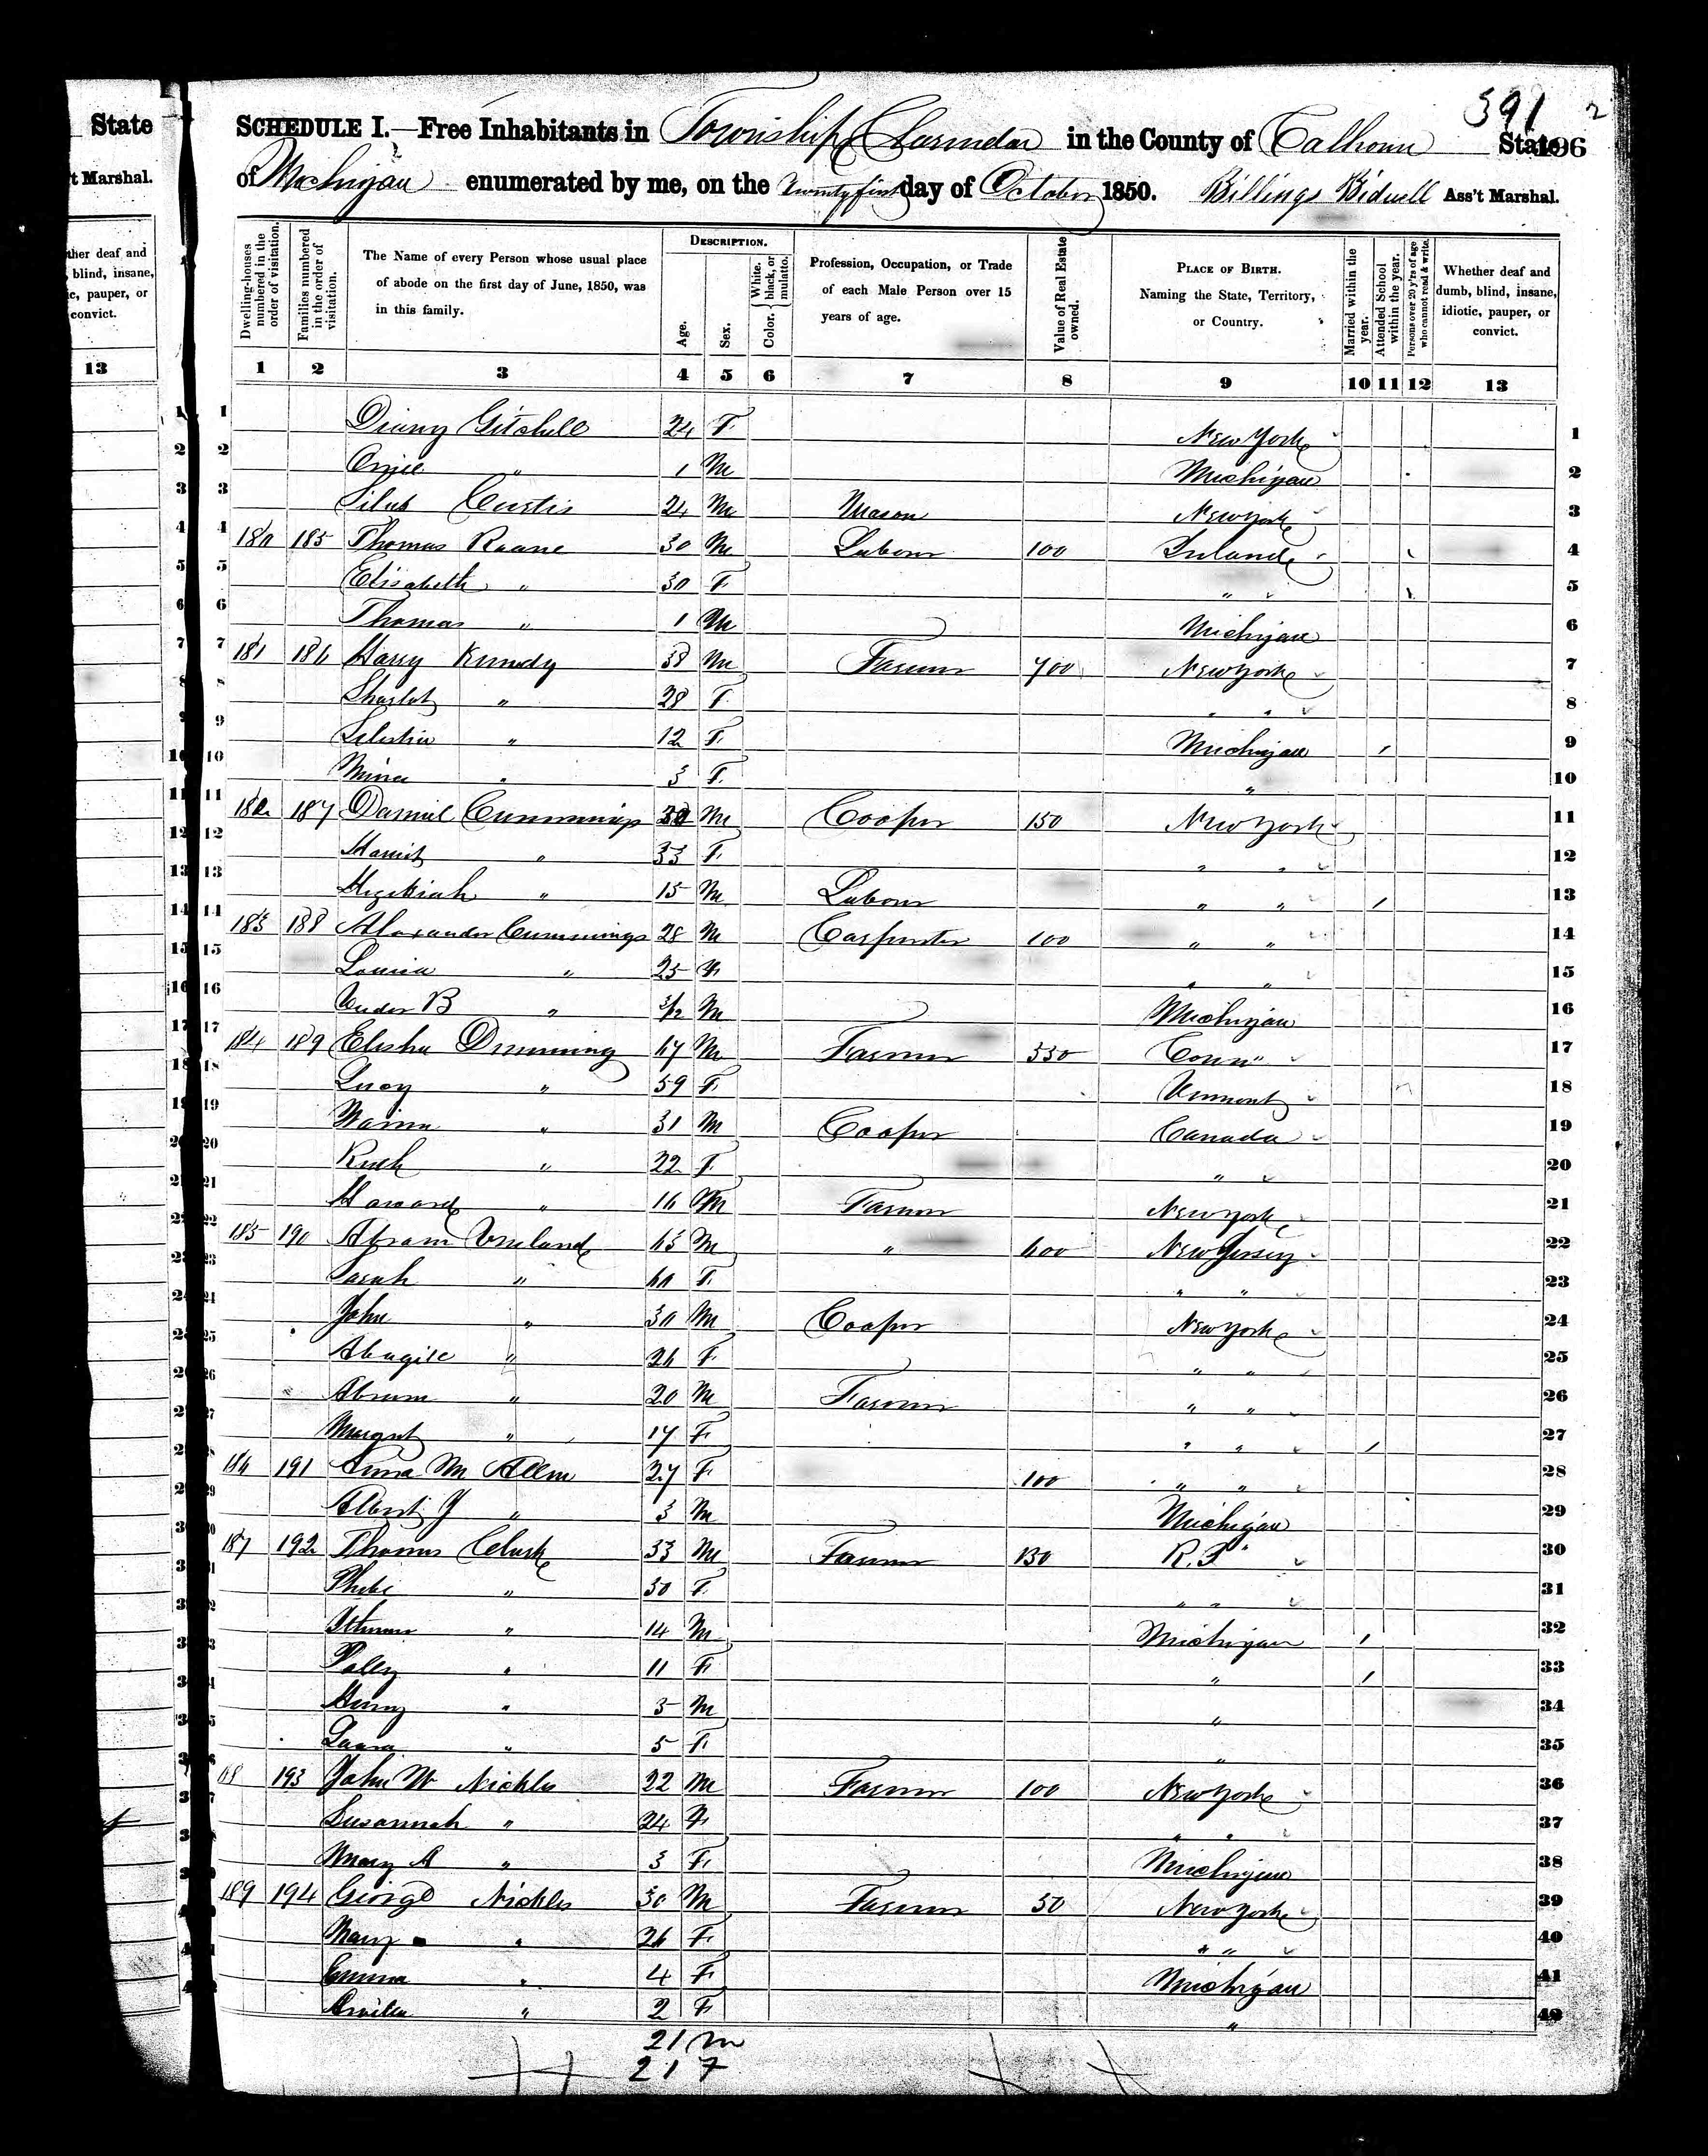 391 2
State
SCHEDULE I.—Free Inhabitants in Township Clarendon in the County of Calhoun State 396
't Marshal.
of Michigan enumerated by me, on the Twenty first day of October 1850. Billings Bidwell Ass't Marshal.
ther deaf and
, blind, insane,
ic, pauper, or
convict.
13
Dwelling-houses numbered in the order of visitation.
Families numbered in the order of visitation.
The Name of every Person whose usual place of abode on the first day of June, 1850, was in this family.
DESCRIPTION.
Age.
Sex.
Color. { White, black, or mulatto.
Profession, Occupation, or Trade of each Male Person over 15 years of age.
Value of Real Estate owned.
PLACE OF BIRTH. Naming the State, Territory, or Country.
Married within the year.
Attended School within the year.
Persons over 20 y'rs of age who cannot read & write.
Whether deaf and dumb, blind, insane, idiotic, pauper, or convict.
1 2 3 4 5 6 7 8 9 10 11 12 13
1 24 F New York 1
2 " 1 M Michigan 2
3 Silas Curtis 24 M Mason New York 3
4 180 185 Thomas 30 M Labour 100 Ireland 4
5 Elisabeth " 30 F " 5
6 Thomas " 1 M Michigan 6
7 181 186 Harry 38 M Farmer 700 New York 7
8 Sharlot " 28 F " " 8
9 " 12 F Michigan 9
10 " 3 F " 10
11 182 187 Daniel Cummings M Cooper 150 New York 11
12 Harriet " 33 F " " 12
13 Hezekiah " 15 M Labour " " 13
14 183 188 Alexander Cummings 28 M Carpenter 100 " " 14
15 Louisa " 25 F " " 15
16 B " 3/12 M Michigan 16
17 184 189 Elisha 67 M Farmer 550 Conn " 17
18 Lucy " 59 F Vermont 18
19 " 31 M Cooper Canada 19
20 Ruth " 22 F " 20
21 " 16 M Farmer New York 21
22 185 190 Abram Vreeland 65 M " 600 New Jersey 22
23 Sarah " 60 F " " 23
24 John " 30 M Cooper New York 24
25 Abagile " 26 F " " 25
26 Abram " 20 M Farmer " " 26
27 Margret " 17 F " " 27
28 186 191 Anna M Allen 27 F 100 " " 28
29 Albert " 3 M Michigan 29
30 187 192 Thomas Clark 33 M Farmer 130 R.I " 30
31 Phebe " 30 F " " 31
32 " 14 M Michigan 32
33 Polly " 11 F " 33
34 Henry " M " 34
35 Laura " 5 F " 35
188 193 John W Nickles 22 M Farmer 100 New York 36
Susannah " 24 F " " 37
Mary A " 3 F Michigan 38
189 194 George Nickles 30 M Farmer 50 New York 39
Mary " 26 F " " 40
Emma " 4 F Michigan 41
" 2 F " 42
21 M
21 F